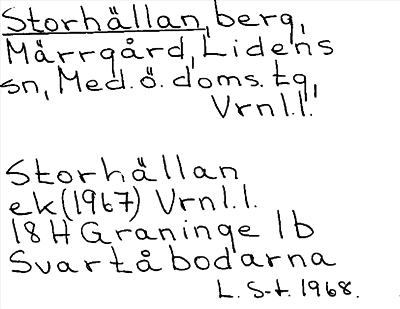 Storhällan, berg,
Mårrgård, Lidens
sn, Med. ö. doms. tg,
Vrnl.l.
Storhällan
ek (1967) Vrnl.l.
18H Graninge 1b
Svartåbodarna
L. S-t. 1968.